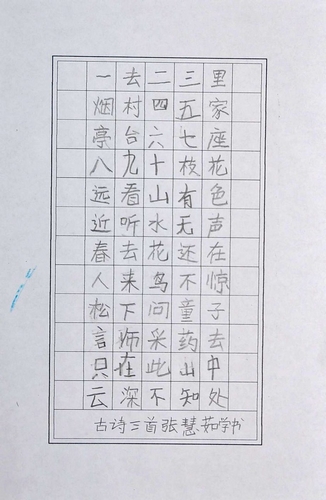 一去二三里
烟村四五家
亭台六七座
八九十枝花
远看山有色
近听水无声
春去花还在
人来鸟不惊
松下问童子
言师采药去
只在此山中
云深不知处
古诗三首张慧茹学书